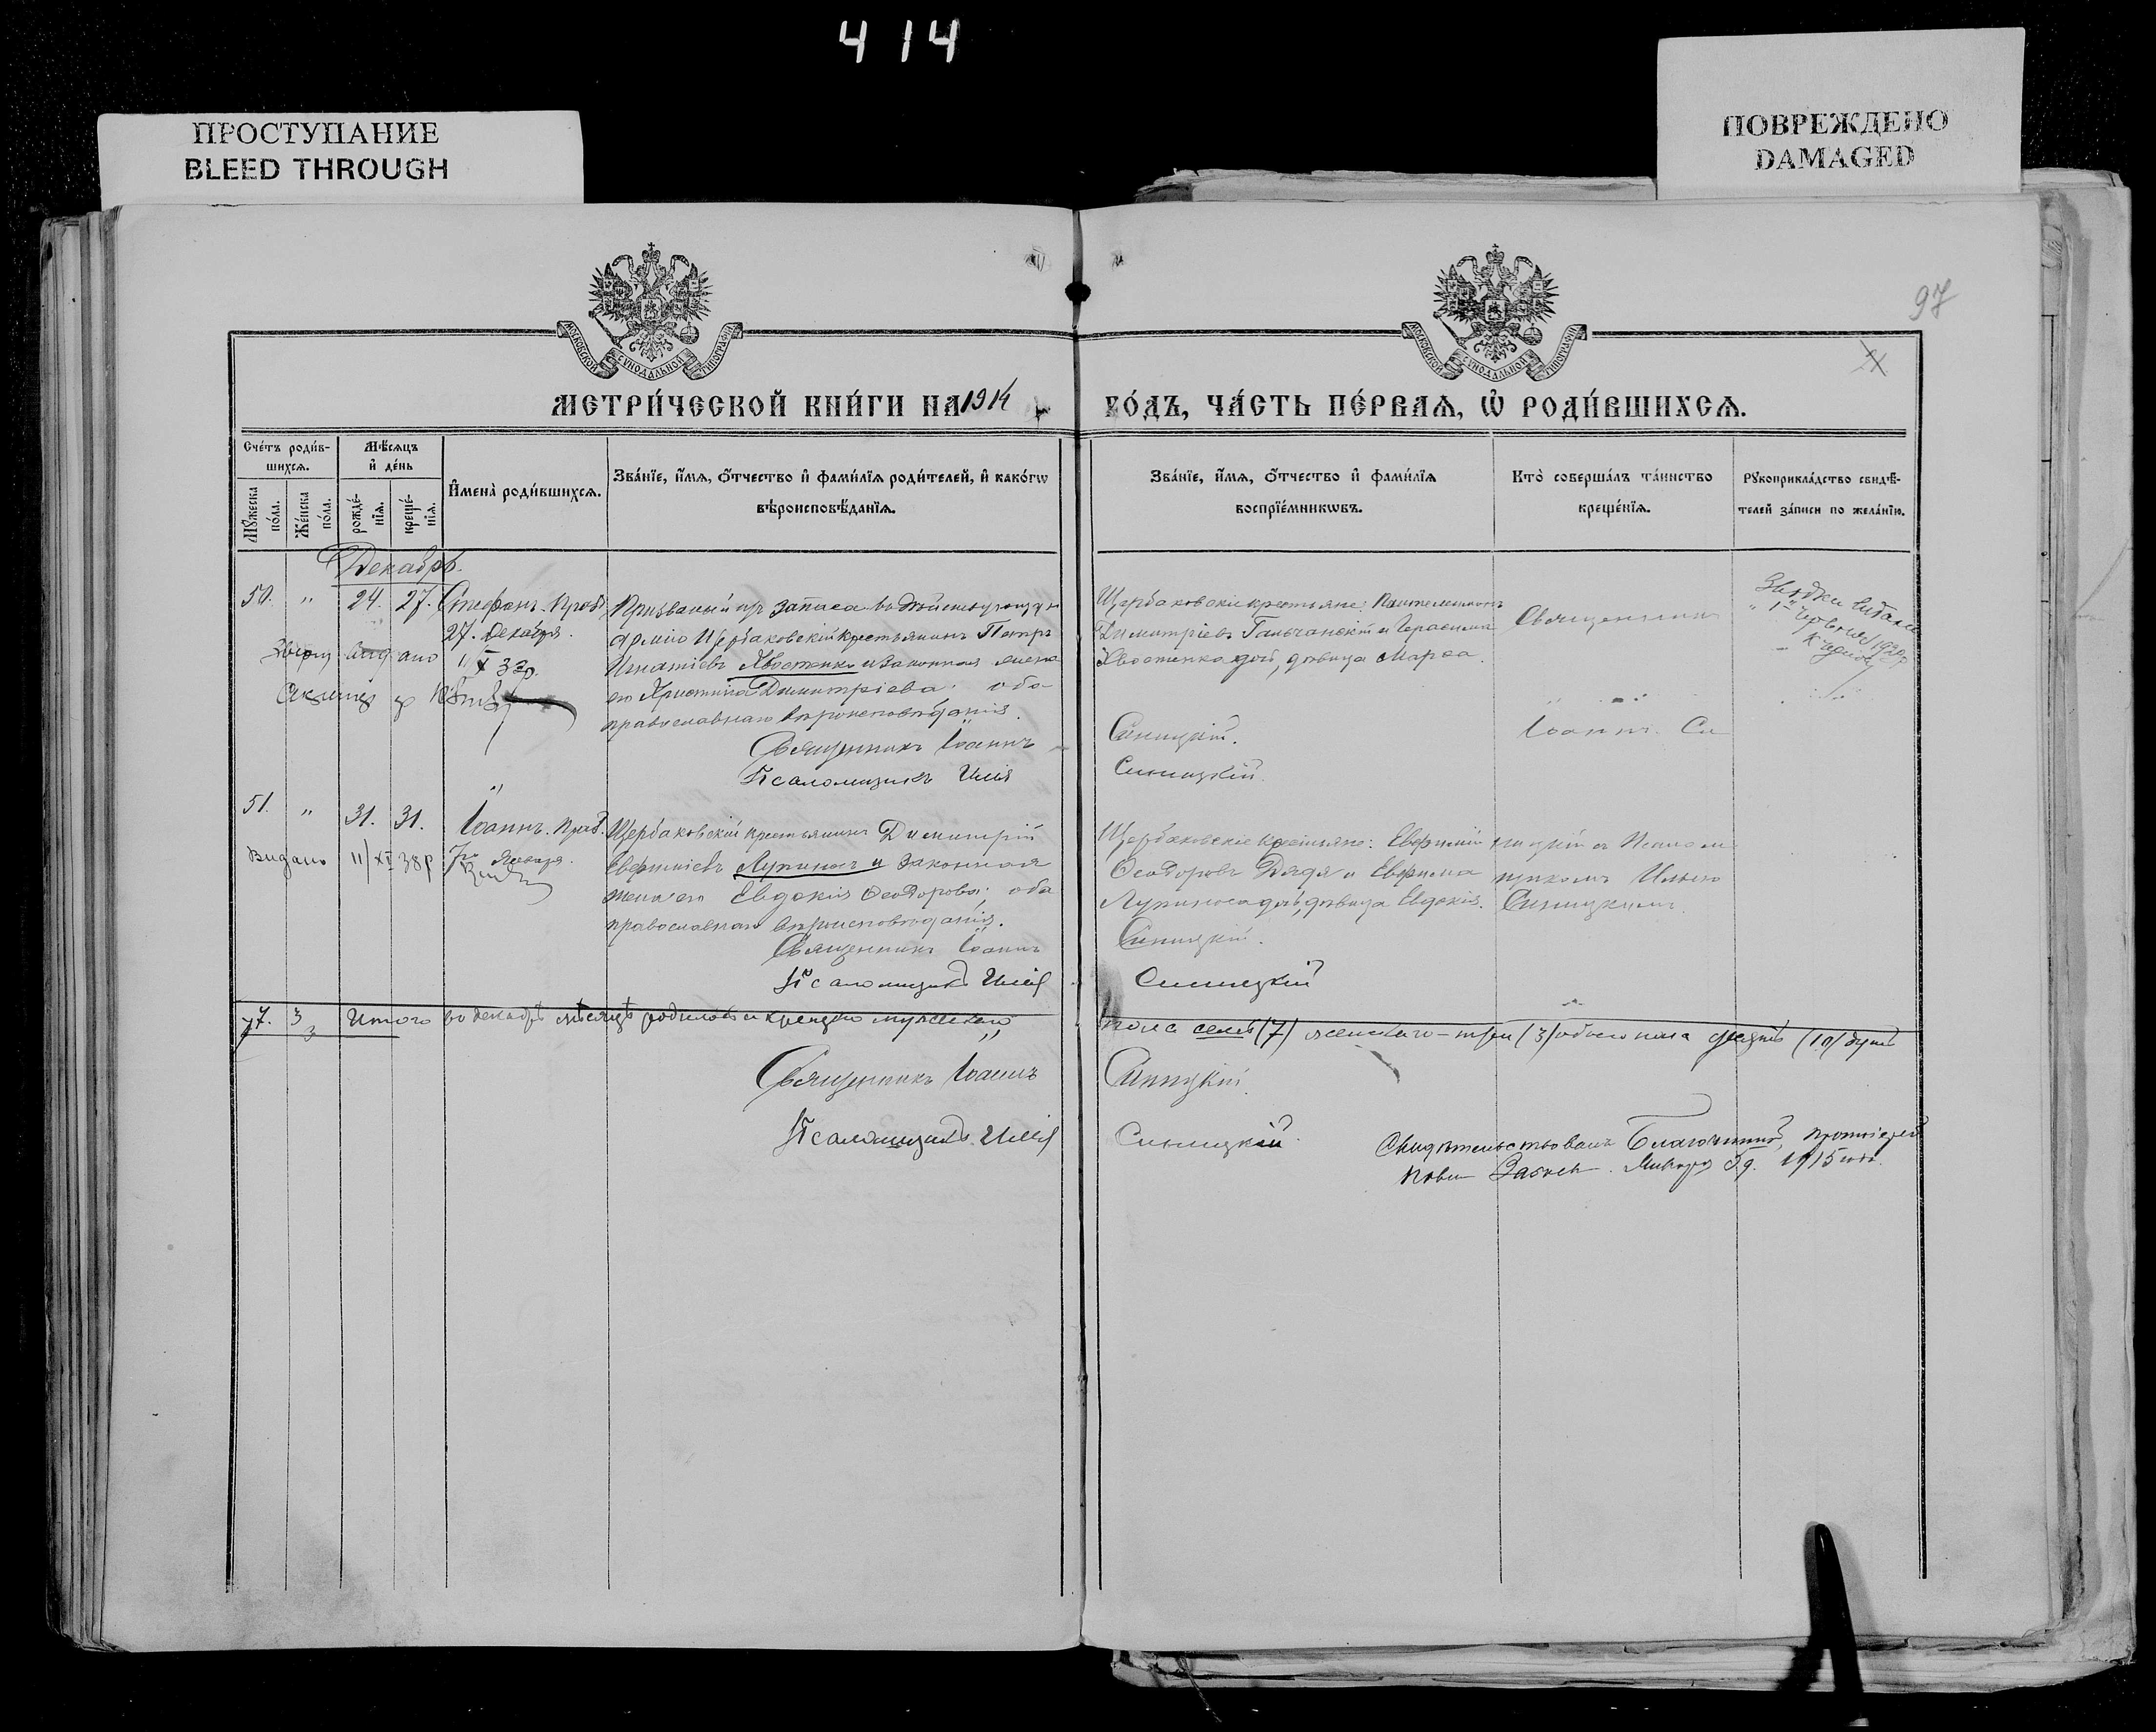 414
ПРОСТУПАНИЕ
BLEED THROUGH
ПОВРЕЖДЕНО
DAMAGED
97
МОСКОВСКОЙ СѴНОДАЛЬНОЙ ТИПОГРАФІИ
МОСКОВСКОЙ СѴНОДАЛЬНОЙ ТИПОГРАФІИ
МЕТРИ́ЧЕСКОЙ КНИ́ГИ НА 1914
ГО́ДЪ, ЧА́СТЬ ПЕ́РВАѦ, Ѡ҆ РОДИ́ВШИХСѦ.
Сче́тъ роди́в-
шихсѧ.
Мꙋ́жеска по́ла.
Же́нска по́ла.
Мѣ́сѧцъ
и҆ де́нь
рожде́-
нїѧ.
креще́-
нїѧ.
И҆мена̀ роди́вшихсѧ.
Зва́нїе, и҆́мѧ, ѻ҆́тчество и҆ фами́лїѧ роди́телей, и҆ како́гѡ
вѣроисповѣ́данїѧ.
Зва́нїе, и҆́мѧ, ѻ҆́тчество и҆ фами́лїѧ
воспрїе́мникѡвъ.
Кто̀ соверша́лъ та́инство
креще́нїѧ.
Рꙋкоприкла́дство свидѣ́-
телей за́писи по жела́нїю.
Декабрь.
50. " 24. 27. Стефанъ. Прав.
27. Декабря.
Призваный изъ запаса въ дѣйствующую
армію Щербаковскій крестьянинъ Петръ
Игнатіевъ Хвостенко и законная жена
его Христина Димитріева; оба
православнаго вѣроисповѣданія.
Священникъ Іоаннъ
Псаломщикъ Илія
Щербаковскіе крестьяне: Пантелеимонъ
Димитріевъ Гальчанскій и Герасима
Хвостенка дочь, дѣвица Марѳа.
Синицкій.
Синицкій.
Священникъ
Іоаннъ Си
51. " 31. 31. Іоаннъ. Прав.
Января.
Видано 11/XI 38р
Щербаковскій крестьянинъ Димитрій
Евфиміевъ Лупиносъ и законная
жена его Евдокія Ѳеодорова; оба
православнаго вѣроисповѣданія.
Священникъ Іоаннъ
Псаломщикъ Илія
Щербаковскіе крестьяне: Евфимій
Ѳеодоровъ Дядя и Евфима
Лупиноса дочь, дѣвица Евдокія.
Синицкій.
Синицкій
ницкій съ Псалом
щикомъ Иліею
Синицкимъ.
7. 3 Итого въ декабрѣ мѣсяцѣ родилось и крещено мужескаго
пола семь (7) женскаго - три (3) обоего пола десять (10) душъ
Священникъ Іоаннъ
Синицкій.
Псаломщикъ Илія
Синицкій.
Свидѣтельствовалъ Благочинный, протоіерей
Января 1915 года.